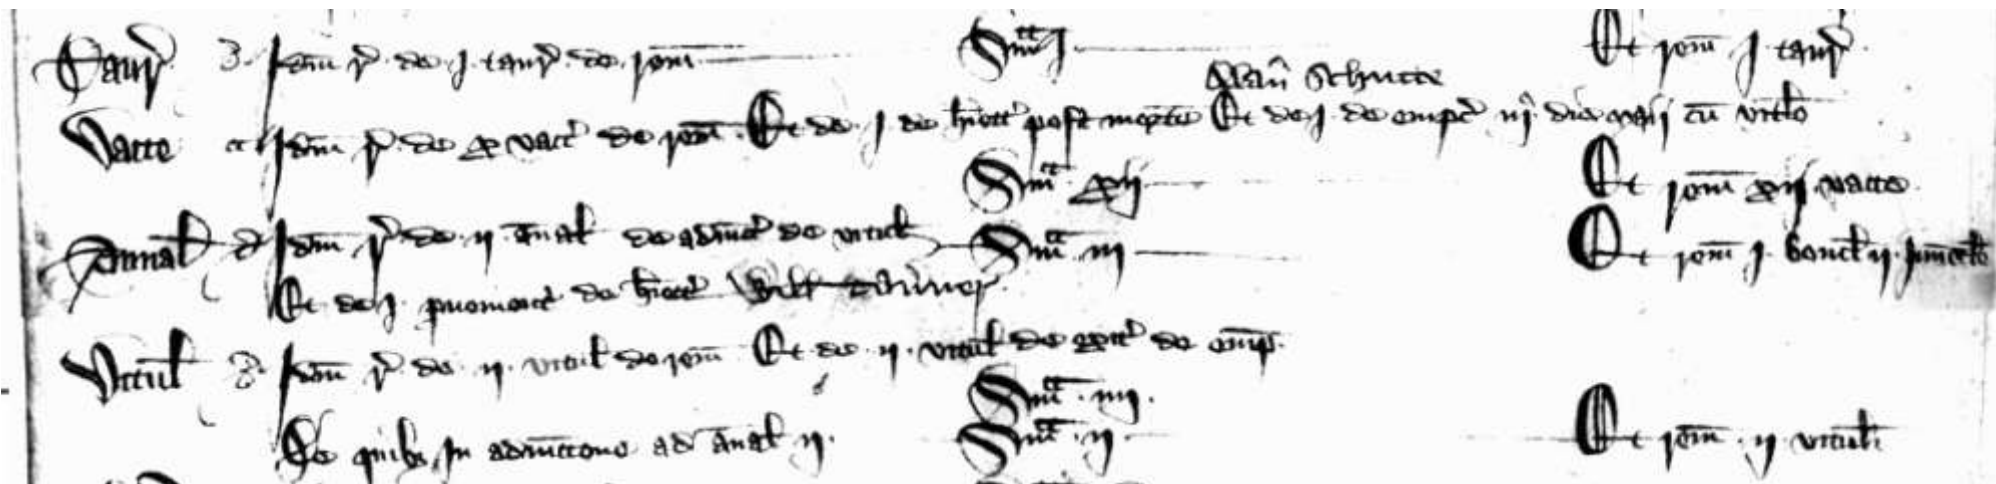 Taur' Idm̄ r' de j taur' de rem̄ Sm̄a j Et rem̄ j taur'
Alan' Schutte
Vacce Idm̄ r' de x vacc' de rem̄ Et de j de h'iett' post mortē Et de j de empt' cū vitlo
Sm̄a xij Et rem̄ xij vacce
Annal' Idm̄ r' de ij ānal' de adiūct' de vitul' Sm̄a iij Et rem̄ j bouicl' ij
Et de j de h'iett' Will'
Vitul' Idm̄ r' de ij vitul' de rem̄ Et de ij vitul' de exit' de emp̄
Sm̄a iiij
De quib; in adiūccone ad ānal' ij Sm̄a ij Et rem̄ ij vituli